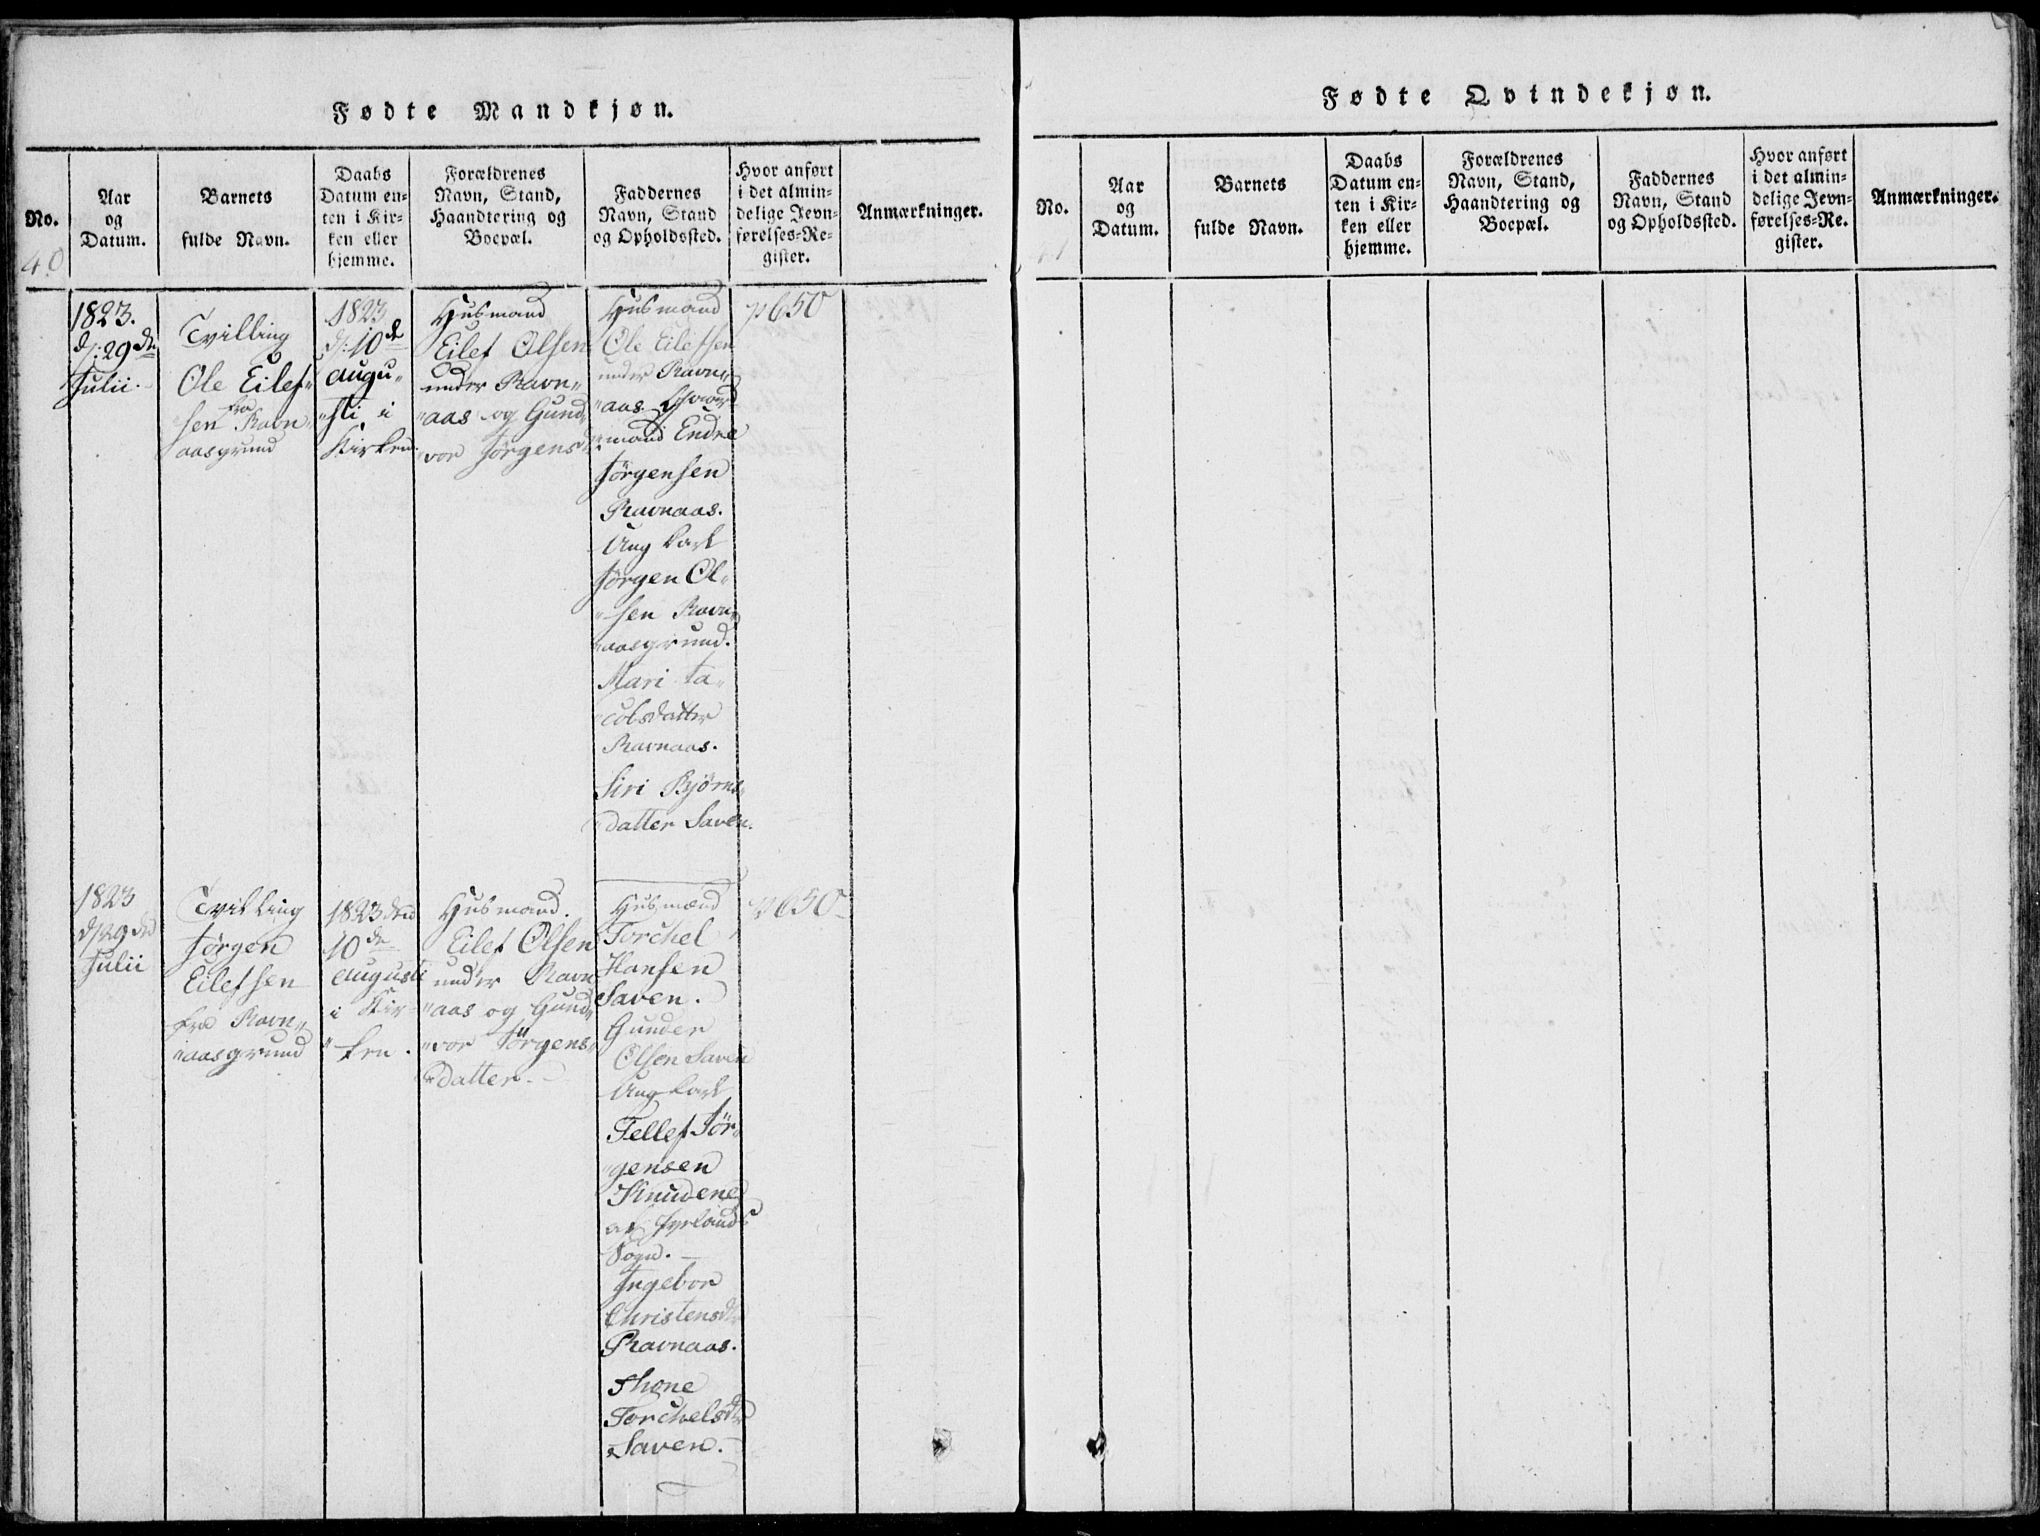 Fødte Mandkjøn.
No.
Aar
og
Datum.
Barnets
fulde Navn.
Daabs
Datum en-
ten i Kir-
ken eller
hjemme.
Forældrenes
Navn, Stand,
Haandtering og
Boepæl.
Faddernes
Navn, Stand
og Opholdssted.
Hvor anført
i det almin-
delige Jevn-
førelses-Re-
gister.
Anmærkninger.
40
1823.
d: 29de
Julii.
Tvilling
Ole Eilef„
„sen fra Ravn„
aasgrund
1823
d: 10de
Augu„
„sti i
Kirken.
Husmand
Eilef Olsen
under Ravn„
„aas og Gund„
„vor Jørgensd:
Husmand
Ole Eilefsen
under Ravn„
„aas.
„mand Endre
Jørgensen
Ravnaas.
Ung Karl
Jørgen Ol„
„sen Ravn„
„aasgrund.
Mari Ja„
„cobsdatter
Ravnaas.
Siri Bjørns„
„datter Saven.
p 650
1823
d: 29de
Julii
Tvilling
Jørgen
Eilefsen
fra Ravn„
„aasgrund
1823 den
10de
Augusti
i Kir„
„ken.
Husmand.
Eilef Olsen
under Ravn
„aas og Gund„
„vor Jørgens„
„datter.
Husmænd
Torchel
Hansen
Saven.
Gunder
Olsen Saven
Ung Karl
Tellef Jør„
„gensen
Knudene
af Fyrlands
Sogn.
Ingebor
Christensdr
Ravnaas.
Thone
Torchelsdr
Saven.
p 650
Fødte Qvindekjøn.
No.
Aar
og
Datum.
Barnets
fulde Navn.
Daabs
Datum en-
ten i Kir-
ken eller
hjemme.
Forældrenes
Navn, Stand,
Haandtering og
Boepæl.
Faddernes
Navn, Stand
og Opholdssted.
Hvor anført
i det almin-
delige Jevn-
førelses-Re-
gister.
Anmærkninger.